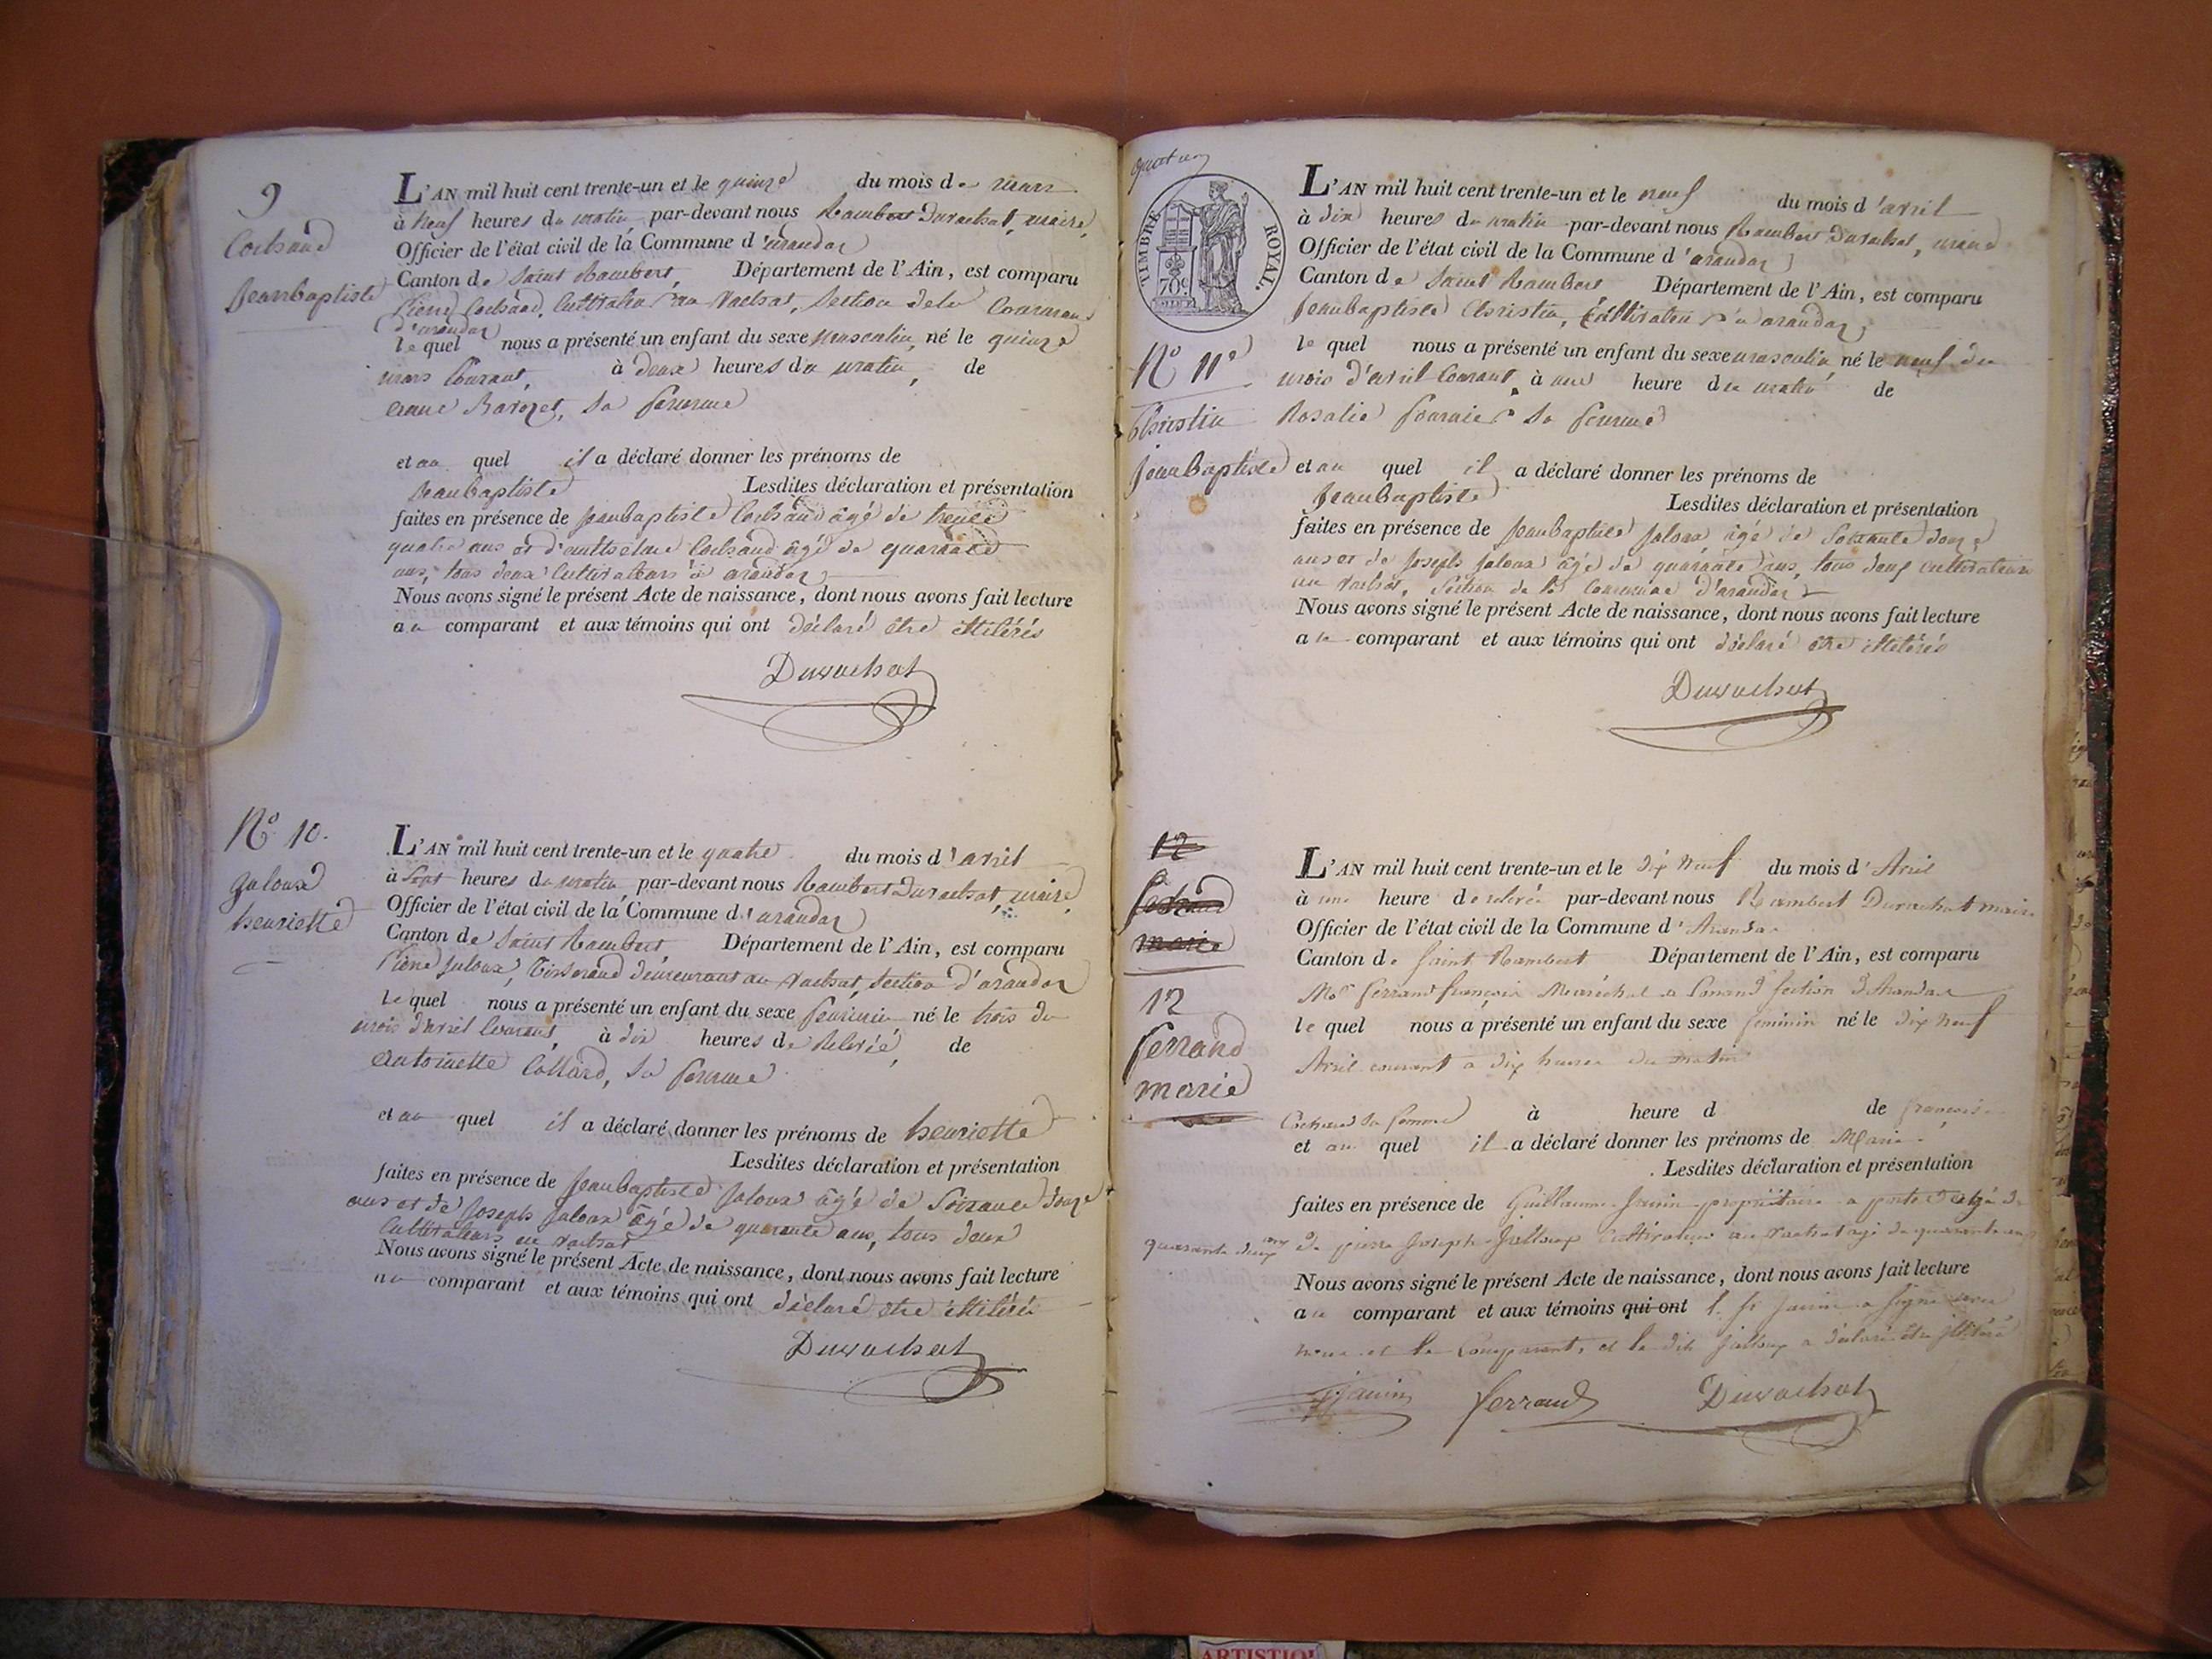 9
Cochand
Jeanbaptiste
L'AN mil huit cent trente-un et le quinze du mois de mars
à neuf heures du matin par-devant nous Rambert Duvachat, maire,
Officier de l'état civil de la Commune d'arandaz
Canton de Saint Rambert, Département de l'Ain, est comparu
Pierre Cochand, Cultivateur au Vachat, Section de la Commune
d'arandaz
lequel nous a présenté un enfant du sexe masculin, né le quinze
mars Courant, à deux heures du matin, de
sa femme
et au quel il a déclaré donner les prénoms de
Jeanbaptiste Lesdites déclaration et présentation
faites en présence de Jeanbaptiste Cochand âgé de trente
quatre ans et d'anthelme Cochand âgé de quarante
ans, tous deux Cultivateurs à arandaz
Nous avons signé le présent Acte de naissance, dont nous avons fait lecture
au comparant et aux témoins qui ont déclaré être illitérés
Duvachat
No 10.
Jaloux
henriette
L'AN mil huit cent trente-un et le quatre du mois d'avril
à Sept heures du matin par-devant nous Rambert Duvachat, maire,
Officier de l'état civil de la Commune d'arandaz
Canton de Saint Rambert Département de l'Ain, est comparu
Pierre Jaloux, Tisserand demeurant au Vachat, Section d'arandaz
lequel nous a présenté un enfant du sexe feminin né le trois du
mois d'avril Courant, à dix heures de Relevée, de
antoinette Collard, Sa femme
et au quel il a déclaré donner les prénoms de henriette
Lesdites déclaration et présentation
faites en présence de Jeanbaptiste Jaloux âgé de Soixante douze
ans et de Joseph Jaloux âgé de quarante ans, tous deux
Cultivateurs au Vachat
Nous avons signé le présent Acte de naissance, dont nous avons fait lecture
au comparant et aux témoins qui ont déclaré être illitérés
Duvachat
TIMBRE ROYAL.
70c
No 11e
Christin
Jeanbaptiste
L'AN mil huit cent trente-un et le neuf du mois d'avril
à dix heures du matin par-devant nous Rambert Duvachat, maire
Officier de l'état civil de la Commune d'arandaz
Canton de Saint Rambert Département de l'Ain, est comparu
Jeanbaptiste Christin, Cultivateur à arandaz
lequel nous a présenté un enfant du sexe masculin né le neuf du
mois d'avril Courant, à une heure du matin de
Rosalie Sa femme
et au quel il a déclaré donner les prénoms de
Jeanbaptiste Lesdites déclaration et présentation
faites en présence de Jeanbaptiste Jaloux âgé de Soixante douze
ans et de Joseph Jaloux âgé de quarante ans, tous deux cultivateurs
au Vachat, Section de la Commune d'arandaz
Nous avons signé le présent Acte de naissance, dont nous avons fait lecture
au comparant et aux témoins qui ont déclaré être illitérés
Duvachat
12
marie
12
ferrand
marie
L'AN mil huit cent trente-un et le dix neuf du mois d'Avril
à une heure de relevée par-devant nous Rambert Duvachat maire
Officier de l'état civil de la Commune d'Arandas
Canton de Saint Rambert Département de l'Ain, est comparu
ferrand françois Maréchal a Conand Section d'Arandas
lequel nous a présenté un enfant du sexe feminin né le dix neuf
Avril courant a dix heures du matin
Cochand Sa femme à heure d de françoise
et au quel il a déclaré donner les prénoms de Marie.
Lesdites déclaration et présentation
faites en présence de Guillaume Janin propriétaire a agé de
quarante deux ans & de pierre Joseph Jalloux Cultivateur au Vachat agé de quarante ans
Nous avons signé le présent Acte de naissance, dont nous avons fait lecture
au comparant et aux témoins qui ont le Sr Janin a signé avec
nous et le Comparant, et le dit Jalloux a déclaré être illitéré
Janin ferrand Duvachat